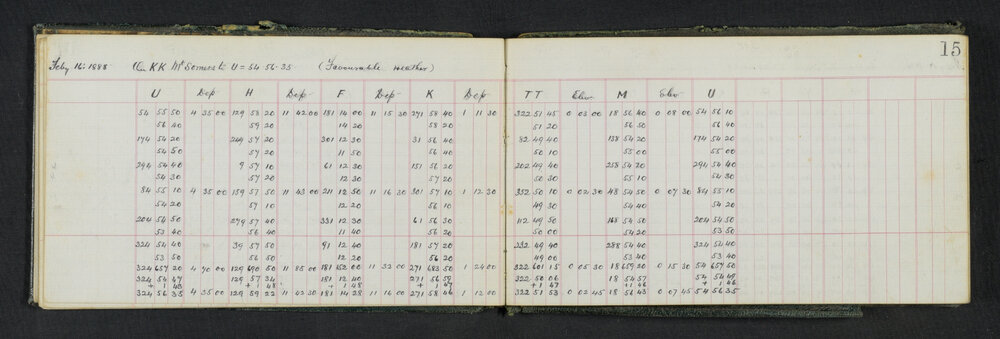 15
Feby 16: 1888 On KK Mt Somers to U = 54.56.35 (Favourable weather)
U Dep H Dep F Dep K Dep TT Elev M Elev U
54 55 50 4 35 00 129 58 20 11 42 00 181 14 00 11 15 30 271 58 40 1 11 30 322 51 45 0 03 00 18 56 40 0 08 00 54 56 10
56 40 59 20 14 20 58 20 51 20 56 50 56 40
174 54 20 249 57 20 301 12 30 31 56 40 82 49 40 138 54 20 174 54 20
54 50 57 20 11 50 56 40 50 10 55 00 55 00
294 54 40 9 57 10 61 12 30 151 56 20 202 49 40 258 54 20 294 54 40
54 30 57 20 12 30 57 20 50 30 55 10 54 30
84 55 10 4 35 00 159 57 50 11 43 00 211 12 50 11 16 30 301 57 10 1 12 30 352 50 10 0 02 30 48 54 50 0 07 30 84 55 10
54 20 57 10 12 20 56 10 49 30 54 40 54 20
204 54 50 279 57 40 331 12 30 61 56 30 112 49 50 168 54 50 204 54 50
53 40 56 40 11 40 56 20 50 00 54 20 53 50
324 54 40 39 57 50 91 12 40 181 57 20 232 49 40 288 54 40 324 54 40
53 50 56 50 12 20 56 20 49 00 53 40 53 40
324 657 20 4 70 00 129 690 50 11 85 00 181 152 00 11 32 00 271 683 50 1 24 00 322 601 15 0 05 30 18 659 20 0 15 30 54 657 50
324 54 47 129 57 34 181 12 40 271 56 59 322 50 06 18 54 57 54 54 49
+ 1 48 + 1 48 + 1 48 + 1 47 + 1 47 + 1 46 + 1 46
324 56 35 4 35 00 129 59 22 11 42 30 181 14 28 11 16 00 271 58 46 1 12 00 322 51 53 0 02 45 18 56 43 0 07 45 54 56 35